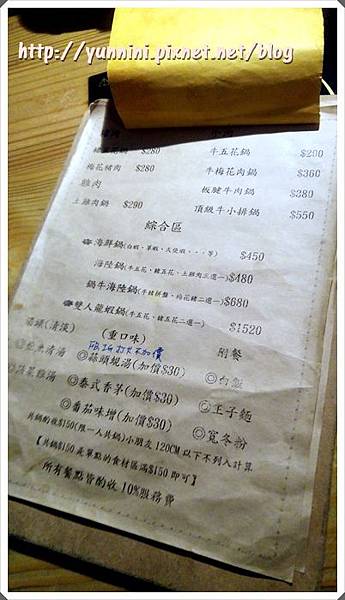 http://yunnini.pixnet.net/blog
$280 牛五花鍋 $280
梅花豬肉 $280 牛梅花肉鍋 $360
雞肉 板腱牛肉鍋 $380
土雞肉鍋 $290 頂級牛小排鍋 $550
綜合區
海鮮鍋(白蝦、草蝦、天使蝦、...等) $450
海陸鍋(牛五花、豬五花、土雞肉三選一) $480
鍋牛海陸鍋(牛雜拼盤、梅花豬二選一) $680
雙人龍蝦鍋(牛五花、豬五花二選一) $1520
湯頭(清淡) (重口味) 附餐
清湯 ◎蒜頭蜆湯(加價$30) ◎白飯
蔬菜雞湯 ◎泰式香茅(加價$30) ◎王子麵
◎番茄味增(加價$30) ◎寬冬粉
共鍋酌收$150(限一人共鍋)小朋友120CM以下不列入計算
【共鍋$150 或單點的食材區滿$150即可】
所有餐點皆酌收10%服務費